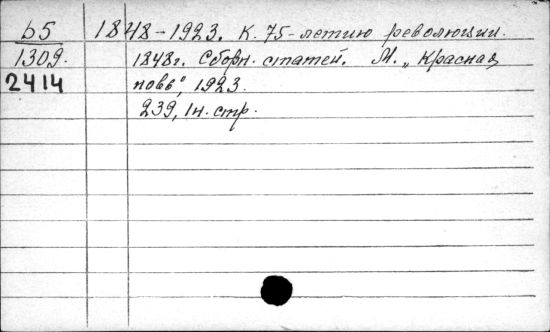 b5 1848-1923. К. 75-летию революции.
1309. 1848г. Сборн. статей. М. „Красная
2414 новь", 1923.
239, 1н. стр.